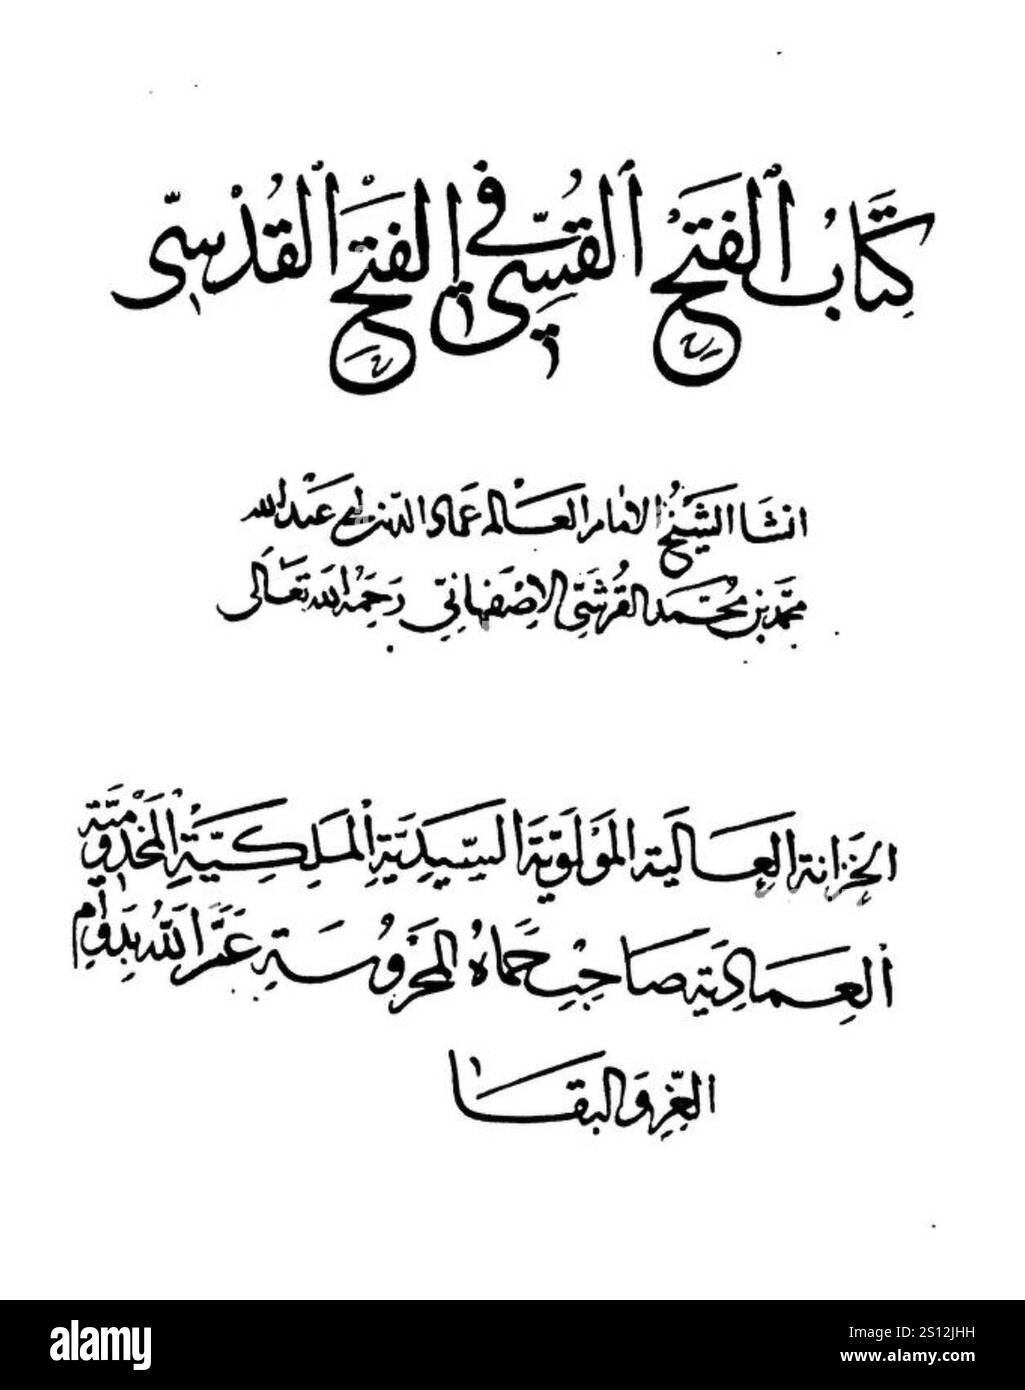 كِتَابُ الفَتْحُ القُسِّي في الفَتْحِ القُدْسِي
انشا الشيخ الامام العالم عماد الدين ابي عبد الله
محمد بن محمد القرشي الاصفهاني رحمه الله تعالى
الخزانة العالية المولوية السيدية الملكية المخدومية
العمادية صاحب حماه المحروسة عمرها الله بدوام
العز والبقا
alamy
Image ID: 2S12JHH
www.alamy.com